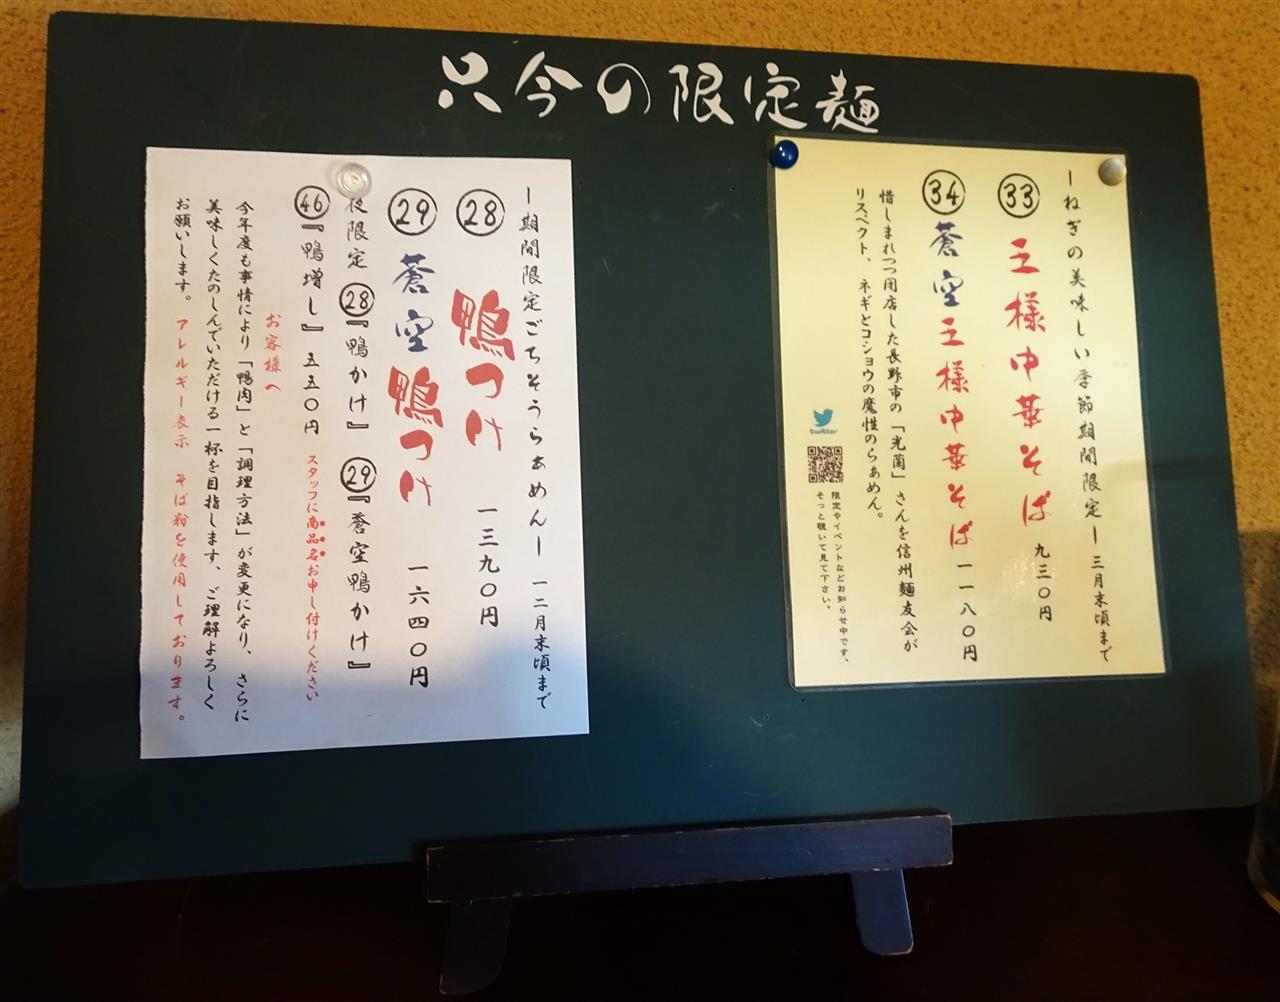 只今の限定麺
ーねぎの美味しい季節期間限定ー 三月末頃まで
㉝ 王様中華そば 九三〇円
㉞ 蒼空王様中華そば 一一八〇円
惜しまれつつ閉店した長野市の「光蘭」さんを信州麺友会が
リスペクト、ネギとコショウの魔性のらぁめん。
twitter
限定やイベントなどお知らせ中です、
そっと覗いて見て下さい。
ー期間限定ごちそうらぁめんー 一二月末頃まで
㉘ 鴨つけ 一三九〇円
㉙ 蒼空鴨つけ 一六四〇円
夜限定 ㉘『鴨かけ』 ㉙『蒼空鴨かけ』
㊻『鴨増し』 五五〇円 スタッフに商品名お申し付けください
お客様へ
今年度も事情により「鴨肉」と「調理方法」が変更になり、さらに
美味しくたのしんでいただける一杯を目指します、ご理解よろしく
お願いします。 アレルギー表示 そば粉を使用しております。